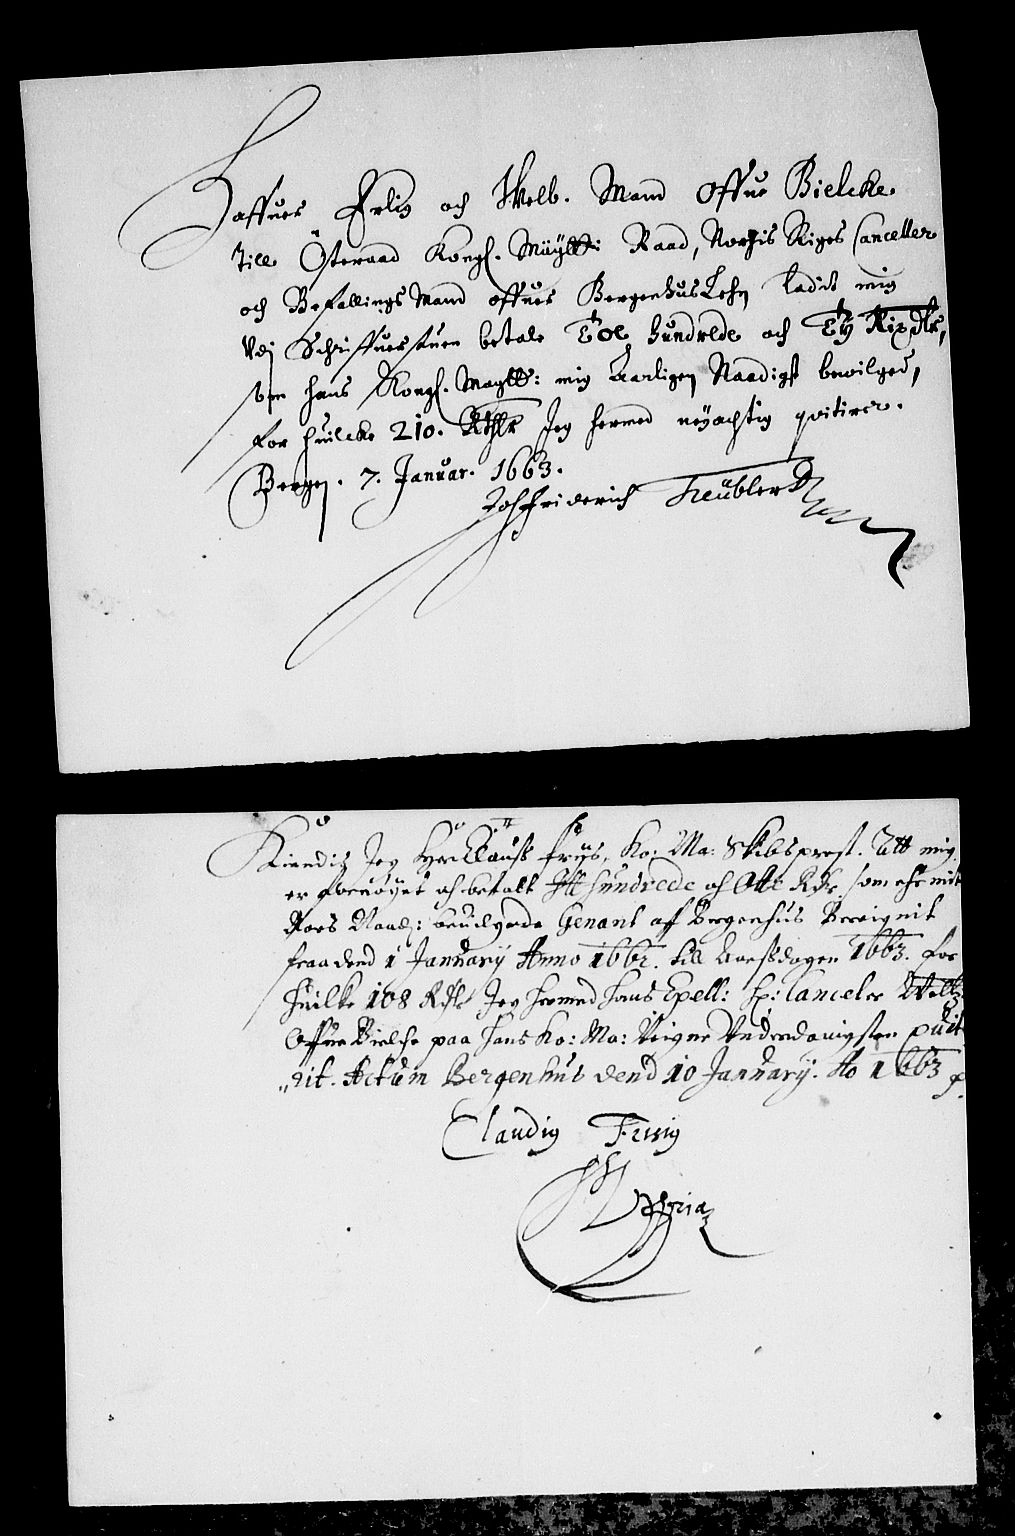 Haffuer Erlig och Welb. Mand Offue Bielcke
till Österaad Kongl. Mäytts: Raad, Norgis Riges Canceller
och Befallings Mand offuer BergenhusLehn ladit mig
Udj Schriffuerstuen betale Toe hundrede och Ty Rixdlr,
som hans Kongl. Maytts: mig Aarligen Naadigst bewilged,
for huilcke 210. Rthlr Jeg hermed nöyachtig qvitirer.
Bergen. 7. Januar. 1663.
Joh Friderich Treübler
Kiendis Jeg Her Clauss Friis, Ko: Ma: Skibsprest. Att mig
er fornöyet och betalt Itt hundrede och Otte Rdr som ehr mit
Aars Naad: beuilgede Genant aff Bergenhus Bereignit
fraa dend 1 January Anno 1662. till Aarsdagen 1663. for
huilke 108 Rdlr Jeg hermed hans Excell: H: Canceler Welb:
Offue Bielche paa hans Ko: Ma: Veigne Underdanigsten quit
"rit. Actum Bergenhus dend 10 January. Ao 1663
Claudiq Frisiq